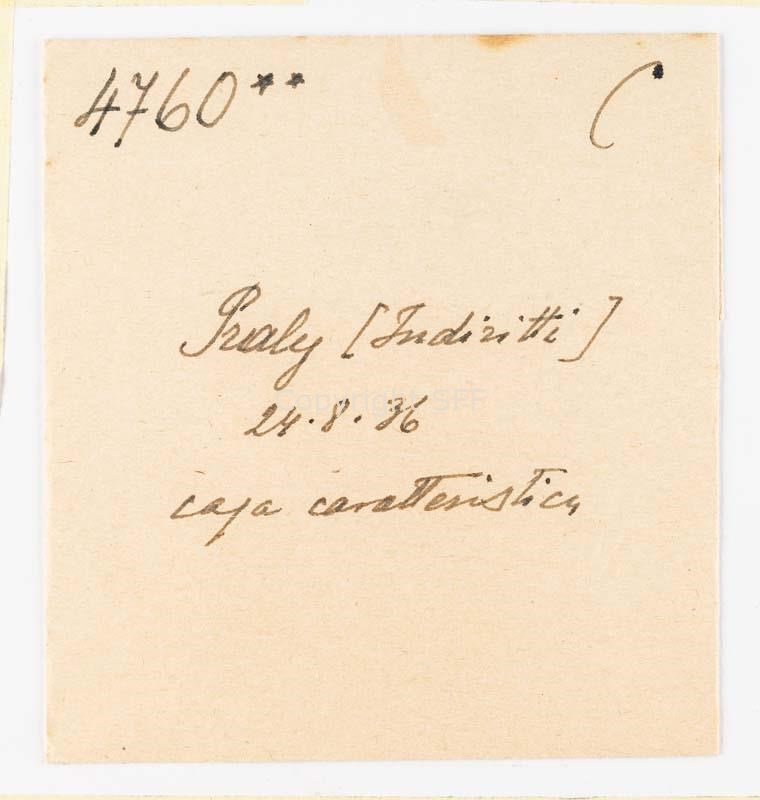 4760** C
Praly [Indiritti]
24.8.36
casa caratteristica